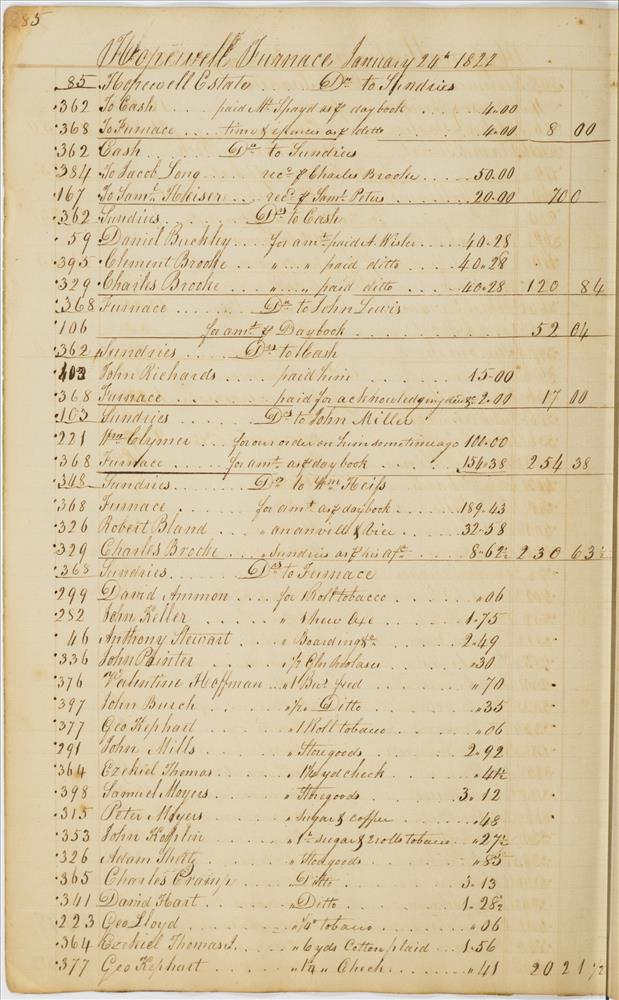 285
Hopewell Furnace January 24th 1822
85 Hopewell Estate . . . Dr to Sundries
362 To Cash . . . . paid Mr Spayd as pr daybook . . . 4.00
368 To Furnace . . . . time & expences as pr ditto 4.00 8 00
362 Cash . . . . . Dr to Sundries
384 To Jacob Long . . . . recd of Charles Brooke . . . 50.00
167 To Saml Keiser . . . recd of Saml Peters . . . 20.00 70 0
362 Sundries . . . . . Drs to Cash
59 Daniel Buckley . . . for amt paid A. Wisler . . . . 40.28
395 Clement Brooke . . " . . . . " paid ditto . . . . 40.28
329 Charles Brooke . . . " . . . . " paid ditto . . . . 40.28 120 84
368 Furnace . . . . . Dr to John Lewis
106 for amt pr Daybook . . . . . 52 04
362 Sundries . . . . Drs to Cash
103 John Richards . . . . paid him . . . . 15.00
368 Furnace . . . . . paid for acknowledging deed &c 2.00 17 00
103 Sundries . . . . . Drs to John Miller
221 Wm Clymer . . . for our order on him some time ago 100.00
368 Furnace . . . . . for amt as pr daybook . . . . 154.38 254 38
348 Sundries . . . . . Drs to Wm Heiss
368 Furnace . . . . . for amt as pr daybook . . . . 189.43
326 Robert Bland . . . " an anvill & vice . . . . 32.58
329 Charles Brooke . . . " Sundries as pr his a/c . . . . 8.62½ 230 63½
368 Sundries . . . . . Drs to Furnace
299 David Ammon . . . for 1 Roll tobacco . . . . " 06
282 John Keller . . . . " 1 new axe . . . . 1.75
46 Anthony Stewart . . . " Boarding &c . . . . 2.49
336 John Painter . . . . " ½ Gln Molases . . . . " 30
376 Valentine Hoffman . . " 1 Bus feed . . . . " 70
397 John Burch . . . . " ½ " Ditto . . . . " 35
377 Geo Kephart . . . . " 1 Roll tobacco . . . . " 06
291 John Mills . . . . " Storegoods . . . . 2.92
364 Ezekiel Thomas . . . . " 1½ yd check . . . . " 41½
398 Samuel Moyers . . . . " Storegoods . . . . 3.12
315 Peter Moyers . . . . " Sugar & coffee . . . . " 48
353 John Kopplin . . . . " 1 lb sugar & 2 rolls tobacco . . " 27½
326 Adam Sheetz . . . . " Storegoods . . . . " 85
365 Charles Cramp . . . . " Ditto . . . . 3.13
341 David Hart . . . . " Ditto . . . . 1.28½
223 Geo Lloyd . . . . " ¼ lb tobacco . . . . " 06
364 Ezekiel Thomas J. . . . " 6 yds Cotton plaid . . . 1.56
377 Geo Kephart . . . . " 1¼ " Check . . . . " 41 20 21½